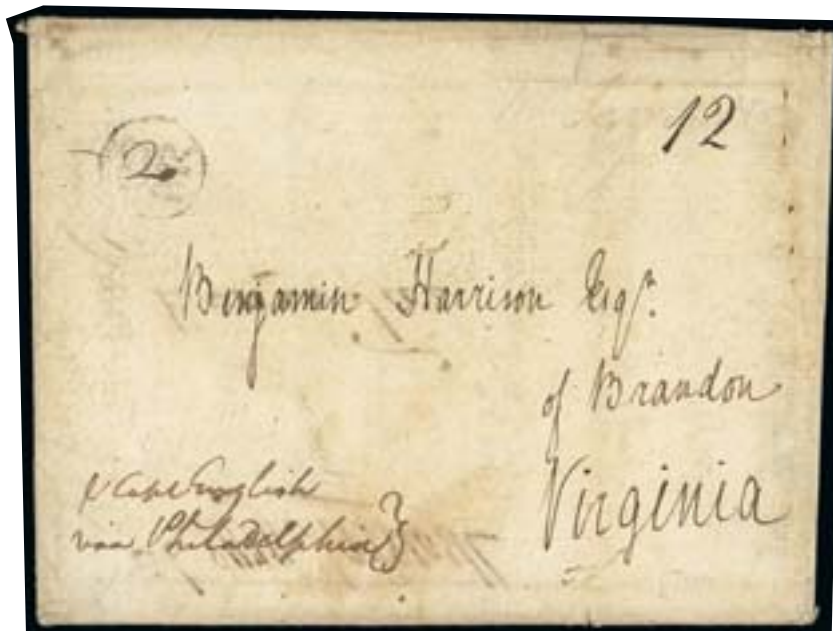 12
2
Benjamin Harrison Esqr.
of Brandon
Virginia
Capt English
via Philadelphia